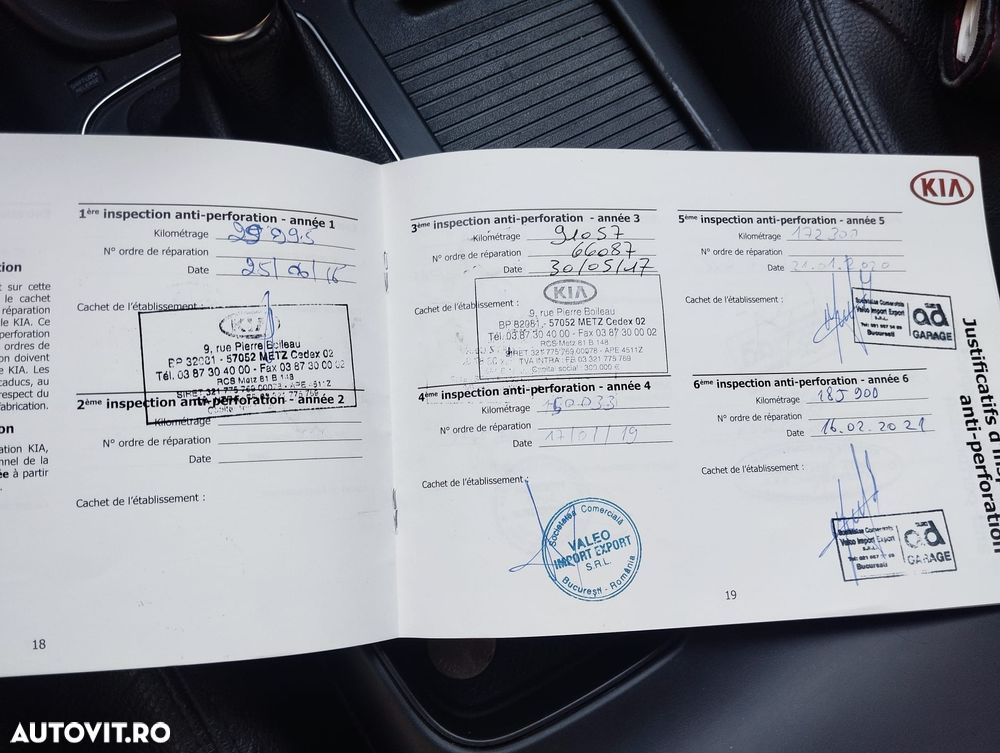 KIA
tion
sur cette
le cachet
réparation
le KIA. Ce
perforation
ordres de
on doivent
e KIA. Les
caducs, au
respect du
fabrication.
on
ation KIA,
nnel de la
ée à partir
1ère inspection anti-perforation - année 1
Kilométrage
N° ordre de réparation
Date 25/06/15
Cachet de l'établissement :
KIA
9, rue Pierre Boileau
BP 82081 - 57052 METZ Cedex 02
Tél. 03 87 30 40 00 - Fax 03 87 30 00 02
RCS Metz 81 B 148
SIRET 321 775 769 00078 - APE 4511Z
2ème inspection anti-perforation - année 2
Kilométrage
N° ordre de réparation
Date
Cachet de l'établissement :
18
3ème inspection anti-perforation - année 3
Kilométrage 91057
N° ordre de réparation 66087
Date 30/05/17
Cachet de l'établissement :
KIA
9, rue Pierre Boileau
BP 82081 - 57052 METZ Cedex 02
Tél. 03 87 30 40 00 - Fax 03 87 30 00 02
RCS Metz 81 B 148
SIRET 321 775 769 00078 - APE 4511Z
TVA INTRA : FR 03 321 775 769
Capital social : 300.000 €
4ème inspection anti-perforation - année 4
Kilométrage 150033
N° ordre de réparation
Date 17/01/19
Cachet de l'établissement :
Societatea Comercială
VALEO
IMPORT EXPORT
S.R.L.
Bucureşti - România
5ème inspection anti-perforation - année 5
Kilométrage 172300
N° ordre de réparation
Date 21.01.2020
Cachet de l'établissement :
Valeo Import Export
S.R.L.
Bucuresti
ad
GARAGE
6ème inspection anti-perforation - année 6
Kilométrage 185900
N° ordre de réparation
Date 16.02.2021
Cachet de l'établissement :
Valeo Import Export
S.R.L.
Bucuresti
ad
GARAGE
19
Justificatifs d'insp
anti-perforation
AUTOVIT.RO